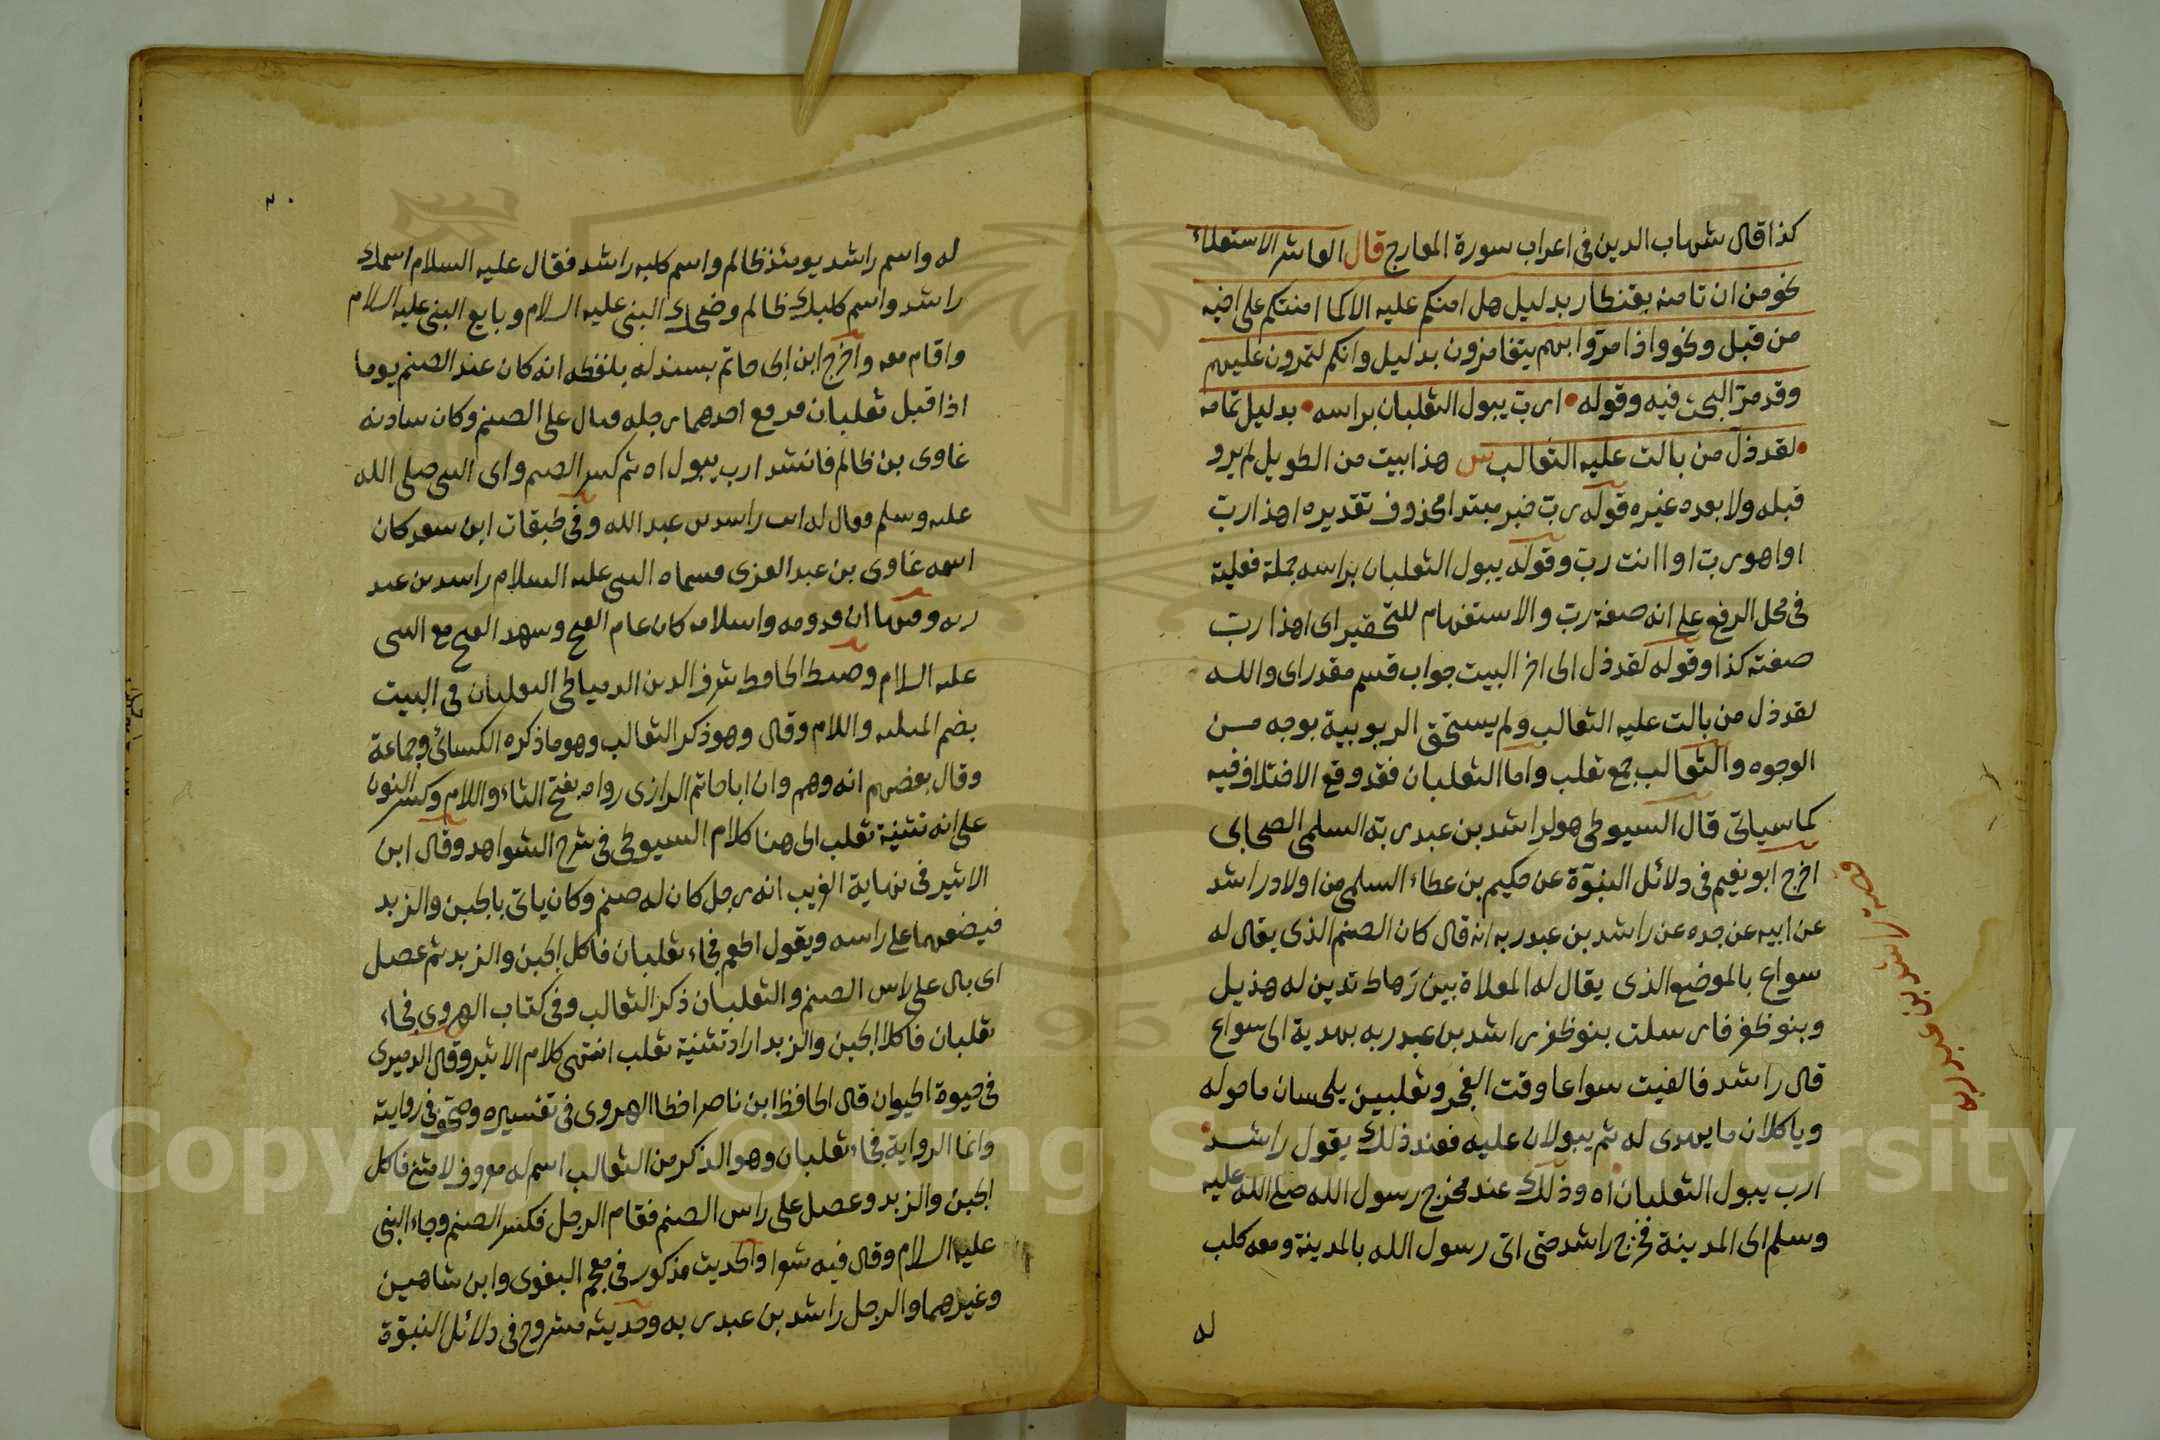 كذا قال شهاب الدين في اعراب سورة المعارج قال العاشر الاستعلاء
نحو من ان تامنه بقنطار بدليل هل امنكم عليه الا كما امنتكم على اخيه
من قبل ونحو واذا مروا بهم يتغامزون بدليل وانكم لتمرون عليهم
وقد مر البحث فيه وقوله • ارب يبول الثعلبان براسه • بدليل تمامه
• لقد ذل من بالت عليه الثعالب ش هذا بيت من الطويل لم يرو
قبله ولا بعده غيره قوله رب خبر مبتدا محذوف تقديره اهذا رب
او اهو رب او اانت رب وقوله يبول الثعلبان براسه جملة فعلية
في محل الرفع على انه صفة رب والاستفهام للتحقير اى اهذا رب
صفته كذا وقوله لقد ذل الى اخر البيت جواب قسم مقدر اى والله
لقد ذل من بالت عليه الثعالب ولم يستحق الربوبية بوجه من
الوجوه والثعالب جمع ثعلب واما الثعلبان فقد وقع الاختلاف فيه
كما سياتى قال السيوطى هو لراشد بن عبد ربه السلمى الصحابى
اخرج ابو نعيم فى دلائل النبوة عن حكيم بن عطاء السلمى من اولاد راشد
عن ابيه عن جده عن راشد بن عبد ربه انه قال كان الصنم الذى يقال له
سواع بالموضع الذى يقال له المعلاة بين رهاط تدين له هذيل
وبنو ظفر فارسلت بنو ظفر راشد بن عبد ربه بهدية الى سواع
قال راشد فالفيت سواعا وقت الفجر وثعلبين يلحسان ما حوله
وياكلان ما يهدى له ثم يبولان عليه فعند ذلك يقول راشد •
ارب يبول الثعلبان اه وذلك عند مخرج رسول الله صلى الله عليه
وسلم الى المدينة فخرج راشد حتى اتى رسول الله بالمدينة ومعه كلب
له
قصة راشد بن عبد ربه
٢٠
له واسم راشد يومئذ ظالم واسم كلبه راشد فقال عليه السلام اسمك
راشد واسم كلبك ظالم وضحك النبى عليه السلام وبايع النبى عليه السلام
واقام معه واخرج ابن ابى حاتم بسند له بلفظه انه كان عند الصنم يوما
اذ اقبل ثعلبان فرفع احدهما رجله فبال على الصنم وكان سادنه
غاوى بن ظالم فانشد ارب يبول اه ثم كسر الصنم واى النبى صلى الله
عليه وسلم فقال له انت راشد بن عبد الله وفى طبقات ابن سعد كان
اسمه غاوى بن عبد العزى فسماه النبى عليه السلام راشد بن عبد
ربه وفيها ان قدومه واسلامه كان عام الفتح وشهد الفتح مع النبى
عليه السلام وضبط الحافظ شرف الدين الدمياطى الثعلبان فى البيت
بضم المثلثة واللام وقال وهو ذكر الثعالب وهو ما ذكره الكسائى وجماعة
وقال بعضهم انه وهم وان ابا حاتم الرازى رواه بفتح الثاء واللام وكسر النون
على انه تثنية ثعلب الى هنا كلام السيوطى فى شرح الشواهد وقال ابن
الاثير فى نهاية الغريب انه رجل كان له صنم وكان ياتى بالجبن والزبد
فيضعهما على راسه ويقول اطعم فجاء ثعلبان فاكل الجبن والزبد ثم عصل
اى بال على راس الصنم والثعلبان ذكر الثعالب وفى كتاب الهروى فجاء
ثعلبان فاكلا الجبن والزبد اراد تثنية ثعلب انتهى كلام الاثير وقال الدميرى
فى حيوة الحيوان قال الحافظ ابن ناصر اخطا الهروى فى تفسيره وصحف فى روايته
وانما الرواية فجاء ثعلبان وهو الذكر من الثعالب اسم له معروف لا مثنى فاكل
الجبن والزبد وعصل على راس الصنم فقام الرجل فكسر الصنم وجاء النبى
عليه السلام وقال فيه شعرا والحديث مذكور فى معجم البغوى وابن شاهين
وغيرهما والرجل راشد بن عبد ربه وحديثه مشروح فى دلائل النبوة
Copyright © King Saud University